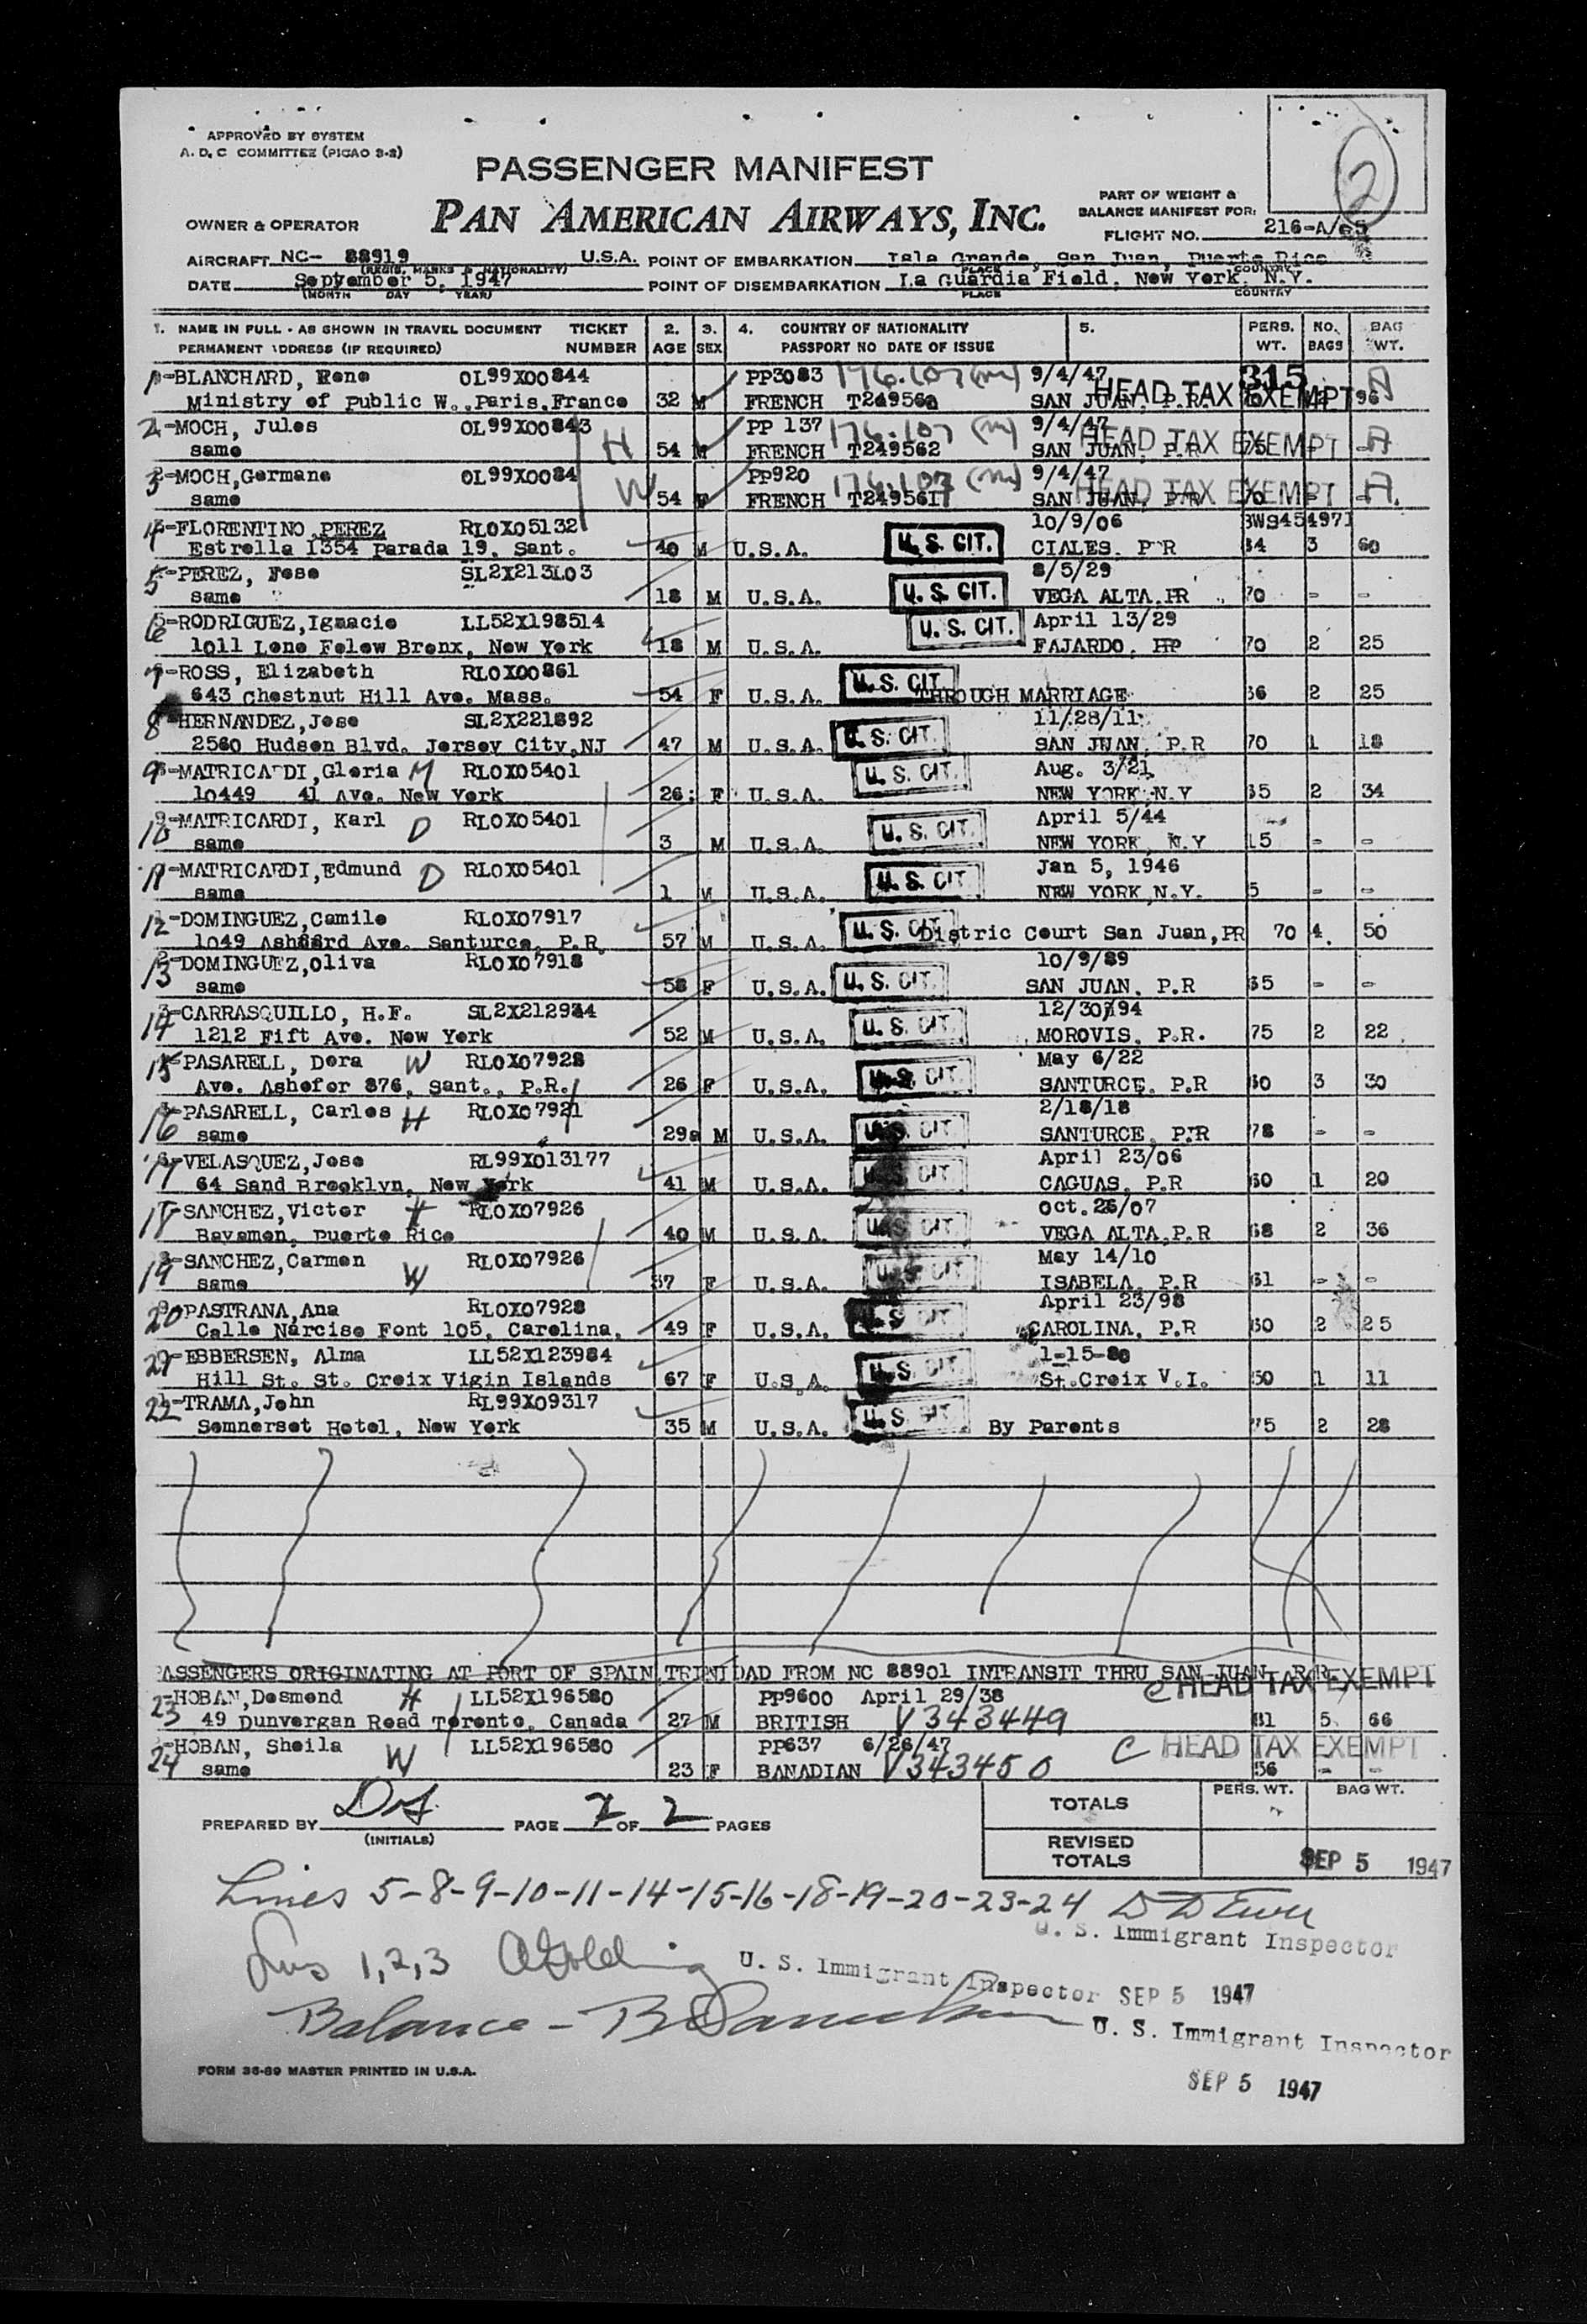 APPROVED BY SYSTEM
A. D. C COMMITTEE (PICAO 3-2)
PASSENGER MANIFEST
2
OWNER & OPERATOR
PAN AMERICAN AIRWAYS, INC.
PART OF WEIGHT &
BALANCE MANIFEST FOR:
FLIGHT NO. 216-A/
AIRCRAFT NC- 88919 U.S.A. POINT OF EMBARKATION Isla Grande, San Juan, Puerto Rico
(REGIS. MARKS & NATIONALITY) PLACE COUNTRY
DATE September 5, 1947 POINT OF DISEMBARKATION La Guardia Field, New York, N.Y.
(MONTH DAY YEAR) PLACE COUNTRY
1. NAME IN FULL - AS SHOWN IN TRAVEL DOCUMENT TICKET 2. 3. 4. COUNTRY OF NATIONALITY 5. PERS. NO. BAG
PERMANENT ADDRESS (IF REQUIRED) NUMBER AGE SEX PASSPORT NO DATE OF ISSUE WT. BAGS WT.
1-BLANCHARD, Rene OL99X00844 PP3083 176.107 (m) 9/4/47 315 A
Ministry of Public W., Paris, France 32 M FRENCH T249560 SAN JUAN, P.R. HEAD TAX EXEMPT 96
2-MOCH, Jules OL99X00843 H PP 137 176.107 (m) 9/4/47
same 54 M FRENCH T249562 SAN JUAN, P.R. HEAD TAX EXEMPT 75 - - A
3-MOCH, Germane OL99X0084 W PP920 176.107 (m) 9/4/47
same 54 F FRENCH T249561 SAN JUAN, P.R HEAD TAX EXEMPT 70 - - A
4-FLORENTINO, PEREZ RLOX05132 10/9/06
Estrella 1354 Parada 19, Sant. 40 M U.S.A. U. S. CIT. CIALES, P R 84 3 60
5-PEREZ, Jose SL2X213L03 8/5/29
same 18 M U.S.A. U. S. CIT. VEGA ALTA, PR 70 - -
6-RODRIGUEZ, Ignacio LL52X198514 April 13/29
1011 Lone Felow Bronx, New York 18 M U.S.A. U. S. CIT. FAJARDO, PR 70 2 25
7-ROSS, Elizabeth RLOX00861
643 Chestnut Hill Ave. Mass. 54 F U.S.A. U. S. CIT. THROUGH MARRIAGE 56 2 25
8-HERNANDEZ, Jose SL2X221892 11/28/11
2560 Hudson Blvd. Jersey City, NJ 47 M U.S.A. U. S. CIT. SAN JUAN, P.R 70 1 18
9-MATRICARDI, Gloria M RLOX05401 Aug. 3/21
10449 41 Ave. New York 26 F U.S.A. U. S. CIT. NEW YORK, N.Y 55 2 34
10-MATRICARDI, Karl D RLOX05401 April 5/44
same 3 M U.S.A. U. S. CIT. NEW YORK, N.Y 15 - -
11-MATRICARDI, Edmund D RLOX05401 Jan 5, 1946
same 1 M U.S.A. U. S. CIT. NEW YORK, N.Y. 5 - -
12-DOMINGUEZ, Camilo RLOX07917
1049 Ashford Ave. Santurce, P.R. 57 M U.S.A. U. S. CIT Distric Court San Juan, PR 70 4 50
13-DOMINGUEZ, Oliva RLOX07918 10/9/89
same 58 F U.S.A. U. S. CIT. SAN JUAN, P.R 65 - -
14-CARRASQUILLO, H.F. SL2X212934 12/30/94
1212 Fift Ave. New York 52 M U.S.A. U. S. CIT. MOROVIS, P.R. 75 2 22
15-PASARELL, Dora W RLOX07928 May 6/22
Ave. Ashofor 876, Sant., P.R. 26 F U.S.A. U. S. CIT. SANTURCE, P.R 60 3 30
16-PASARELL, Carlos H RLOX07921 2/18/18
same 29 M U.S.A. U. S. CIT. SANTURCE, P.R 78 - -
17-VELASQUEZ, Jose RL99X013177 April 23/06
64 Sand Brooklyn, New York 41 M U.S.A. U. S. CIT. CAGUAS, P.R 60 1 20
18-SANCHEZ, Victor H RLOX07926 Oct. 26/07
Bayamon, Puerto Rico 40 M U.S.A. U. S. CIT. VEGA ALTA, P.R 68 2 36
19-SANCHEZ, Carmen W RLOX07926 May 14/10
same 37 F U.S.A. U. S. CIT. ISABELA, P.R 61 - -
20-PASTRANA, Ana RLOX07928 April 23/98
Calle Narciso Font 105, Carolina, 49 F U.S.A. U. S. CIT. CAROLINA, P.R 60 2 25
21-EBBERSEN, Alma LL52X123984 1-15-80
Hill St. St. Croix Vigin Islands 67 F U.S.A. U. S. CIT. St. Croix V.I. 50 1 11
22-TRAMA, John RL99X09317
Somnerset Hotel, New York 35 M U.S.A. U. S. CIT By Parents 75 2 28
PASSENGERS ORIGINATING AT PORT OF SPAIN, TRINIDAD FROM NC 88901 INTRANSIT THRU SAN JUAN, P.R.
23-HOBAN, Desmond H LL52X196580 PP9600 April 29/38 C HEAD TAX EXEMPT
49 Dunvergan Road Toronto, Canada 27 M BRITISH V343449 81 5 66
24-HOBAN, Sheila W LL52X196580 PP637 6/26/47 C HEAD TAX EXEMPT
same 23 F BANADIAN V343450 56 - -
PREPARED BY (INITIALS) PAGE 2 OF 2 PAGES
TOTALS PERS. WT. BAG WT.
REVISED TOTALS
SEP 5 1947
Lines 5-8-9-10-11-14-15-16-18-19-20-23-24
U. S. Immigrant Inspector
Lins 1,2,3
U. S. Immigrant Inspector SEP 5 1947
Balance -
U. S. Immigrant Inspector
FORM 36-89 MASTER PRINTED IN U.S.A.
SEP 5 1947